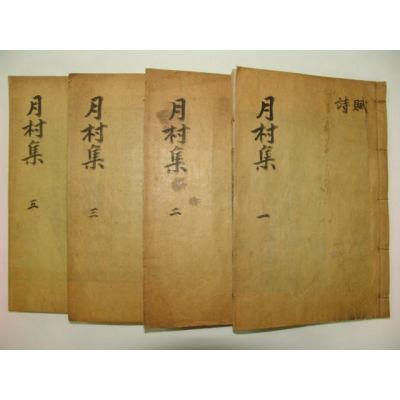 賦
詩
月村集 一
月村集 二
月村集 三
月村集 五